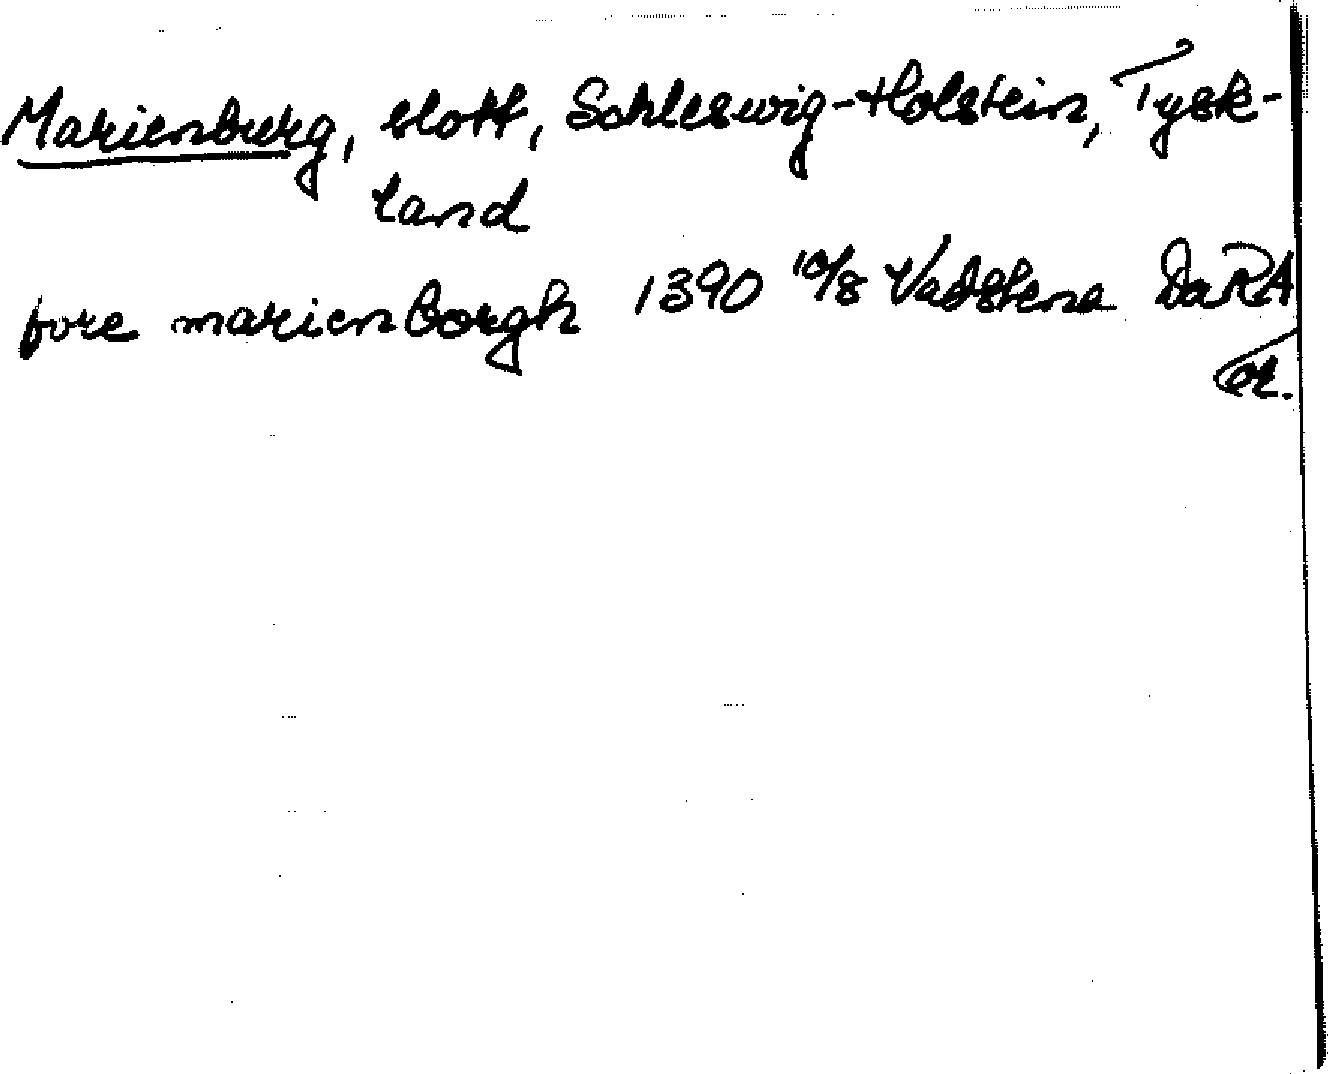 Marienburg, slott, Schleswig-Holstein, Tysk-
land
fore marienborgh 1390 10/8 Vadstena DaRA
or.